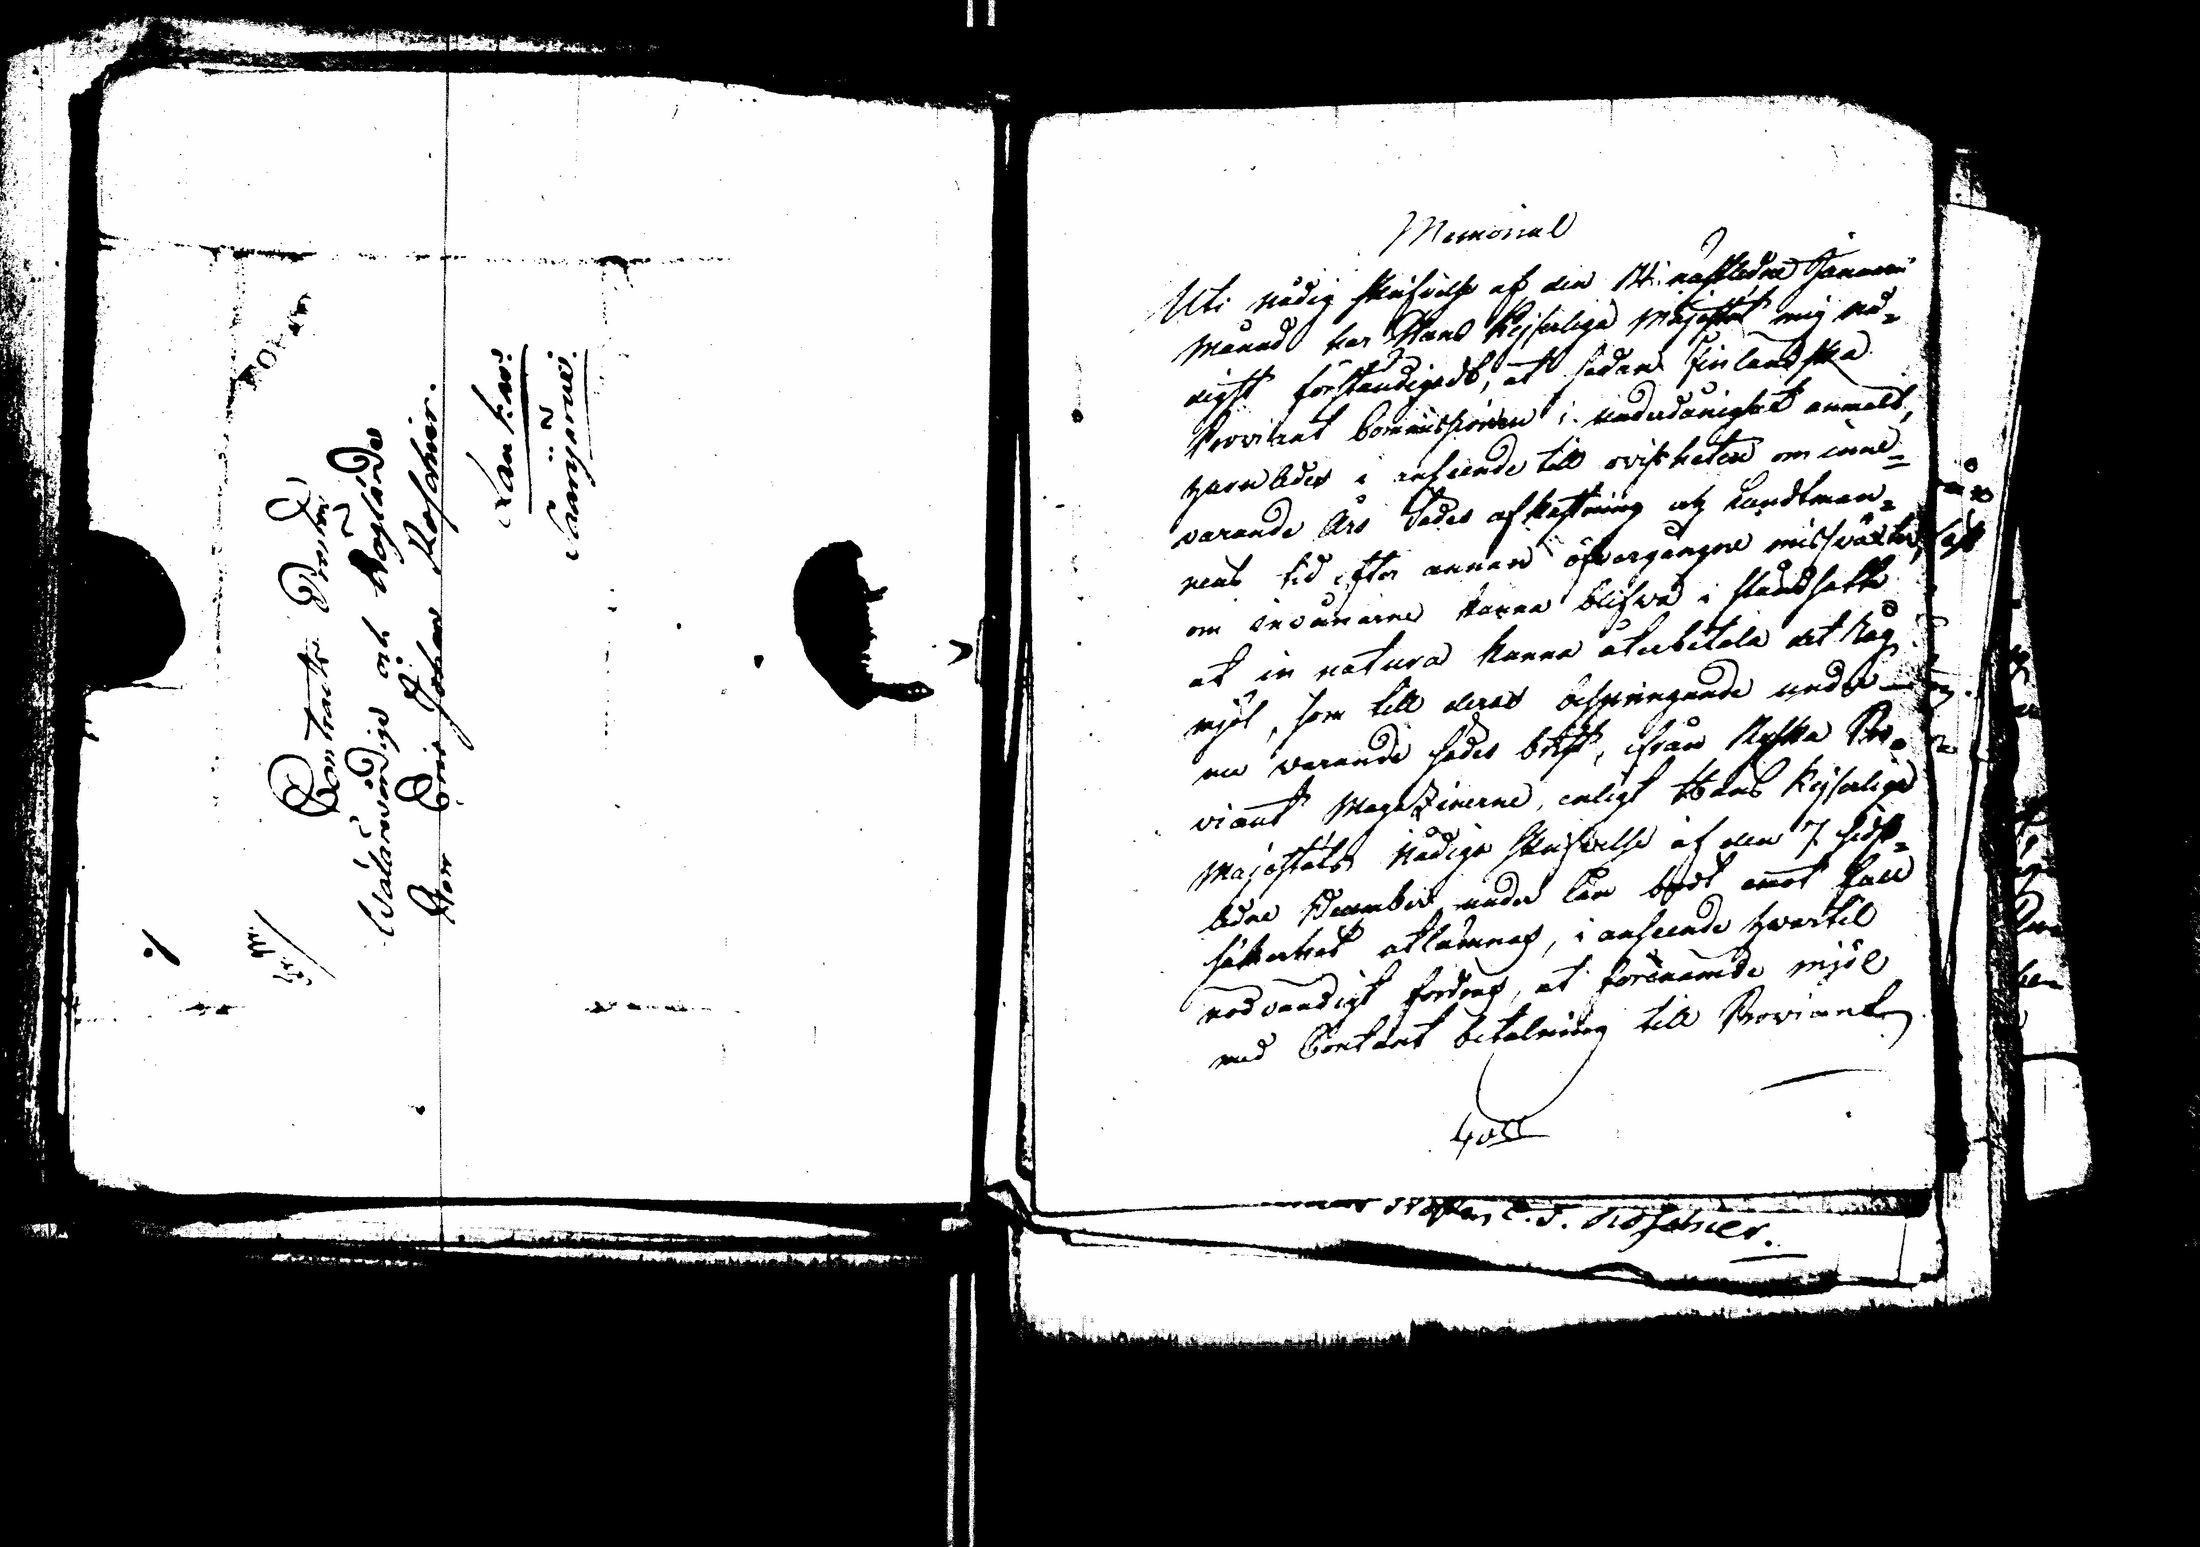 Contracts Prosten
Wälärevördige och Höglärde
Herr Eric Johan Roschier.
Laukas.
Saarijärvi.
Memorial
Uti Nådig skrifvelse af den 14. nästledne Januarii
Månad har Hans Kejserliga Majestät mig nå-
digst förständigadt, at sedan Finlandska
Proviant Commissionen i underdånighet anmält,
huruledes i anseende till ovissheten om inne-
varande Års Sädes afkastning och Landtman-
nens tid efter annan öfvergångne missväxter,
om invånarne kunna blifva i ståndsatte
at in natura kunna återbetala det Råg
mjöl, som till deras bespringande under
nu varande sädes brist, ifrån Ryska Pro-
viant Magazinerne, enligt Hans Kejserliga
Majestäts Nådiga skrifvelse af den 7. sidst-
ledne December under Lån bordt emot full
säkerhet utlämnas, i anseende hvartil
nödvändigt fordras, at förenämde mjöl
med Contant betalning till Proviant
C. J. Roschier.